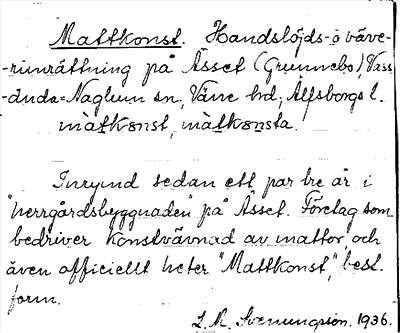 Mattkonst. Handslöjds- o väve-
-riinrättning på Åsset (Grunnebo), Vass-
-ända=Naglum sn, Väne hd, Älfsborgs l.
màtkonst, màtkonsta.
Inrymd sedan ett par tre år i
"herrgårdsbyggnaden" på Åsset. Företag som
bedriver konstvävnad av mattor, och
även officiellt heter "Mattkonst", best.
form.
1936.